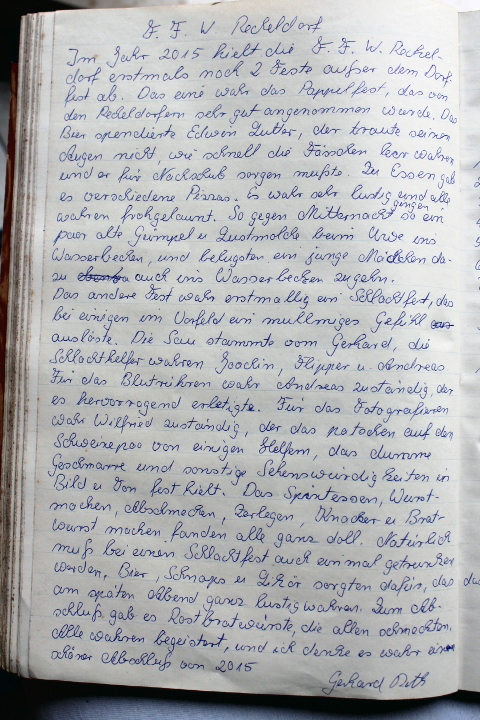 F. F. W Reckeldorf
Im Jahr 2015 hielt die F. F. W. Reckel-
dorf erstmals noch 2 Feste außer dem Dorf-
fest ab. Das eine wahr das Pappelfest, das von
den Reckeldorfern sehr gut angenommen wurde. Das
Bier spendierte Edwin, der traute seinen
Augen nicht, wie schnell die Fässchen leer wahren
und er für Nachschub sorgen mußte. Zu Essen gab
es verschiedene Pizzas. Es wahr sehr lustig und alle
wahren frohgelaunt. So gegen Mitternacht gingen so ein
paar alte Gümpel u Lustmolche beim Uwe ins
Wasserbecken, und belugsten ein junge Mädchen da-
zu auch ins Wasserbecken zugehn.
Das andere Fest wahr erstmallig ein Schlachtfest, das
bei einigen im Vorfeld ein mullmiges Gefühl
auslöste. Die Sau stammte vom Gerhard, die
Schlachthelfer wahren Joachin, Flipper u. Andreas.
Für das Blutrühren wahr Andreas zuständig, der
es hervorragend erletigte. Für das Fotografieren
wahr Wilfried zuständig, der das patschen auf den
Schweinepoo von einigen Helfern, das dumme
Geschmarre und sonstige Sehenswürdigkeiten in
Bild u Ton fest hielt. Das Spintessen, Wurst-
machen, Abschmecken, Zerlegen, Knacker u Brat-
wurst machen fanden alle ganz doll. Natürlich
muß bei einen Schlachtfest auch einmal getrunken
werden, Bier, Schnaps u Likör sorgten dafür, das das
am späten Abend ganz lustig wahren. Zum Ab-
schluß gab es Rostbratwürste, die allen schmeckten.
Alle wahren begeistert, und ich denke es wahr ein
schöner Abschluß von 2015
Gerhard